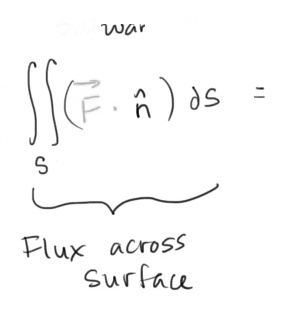 war
∬_S (F⃗ · n̂) dS =
Flux across
surface